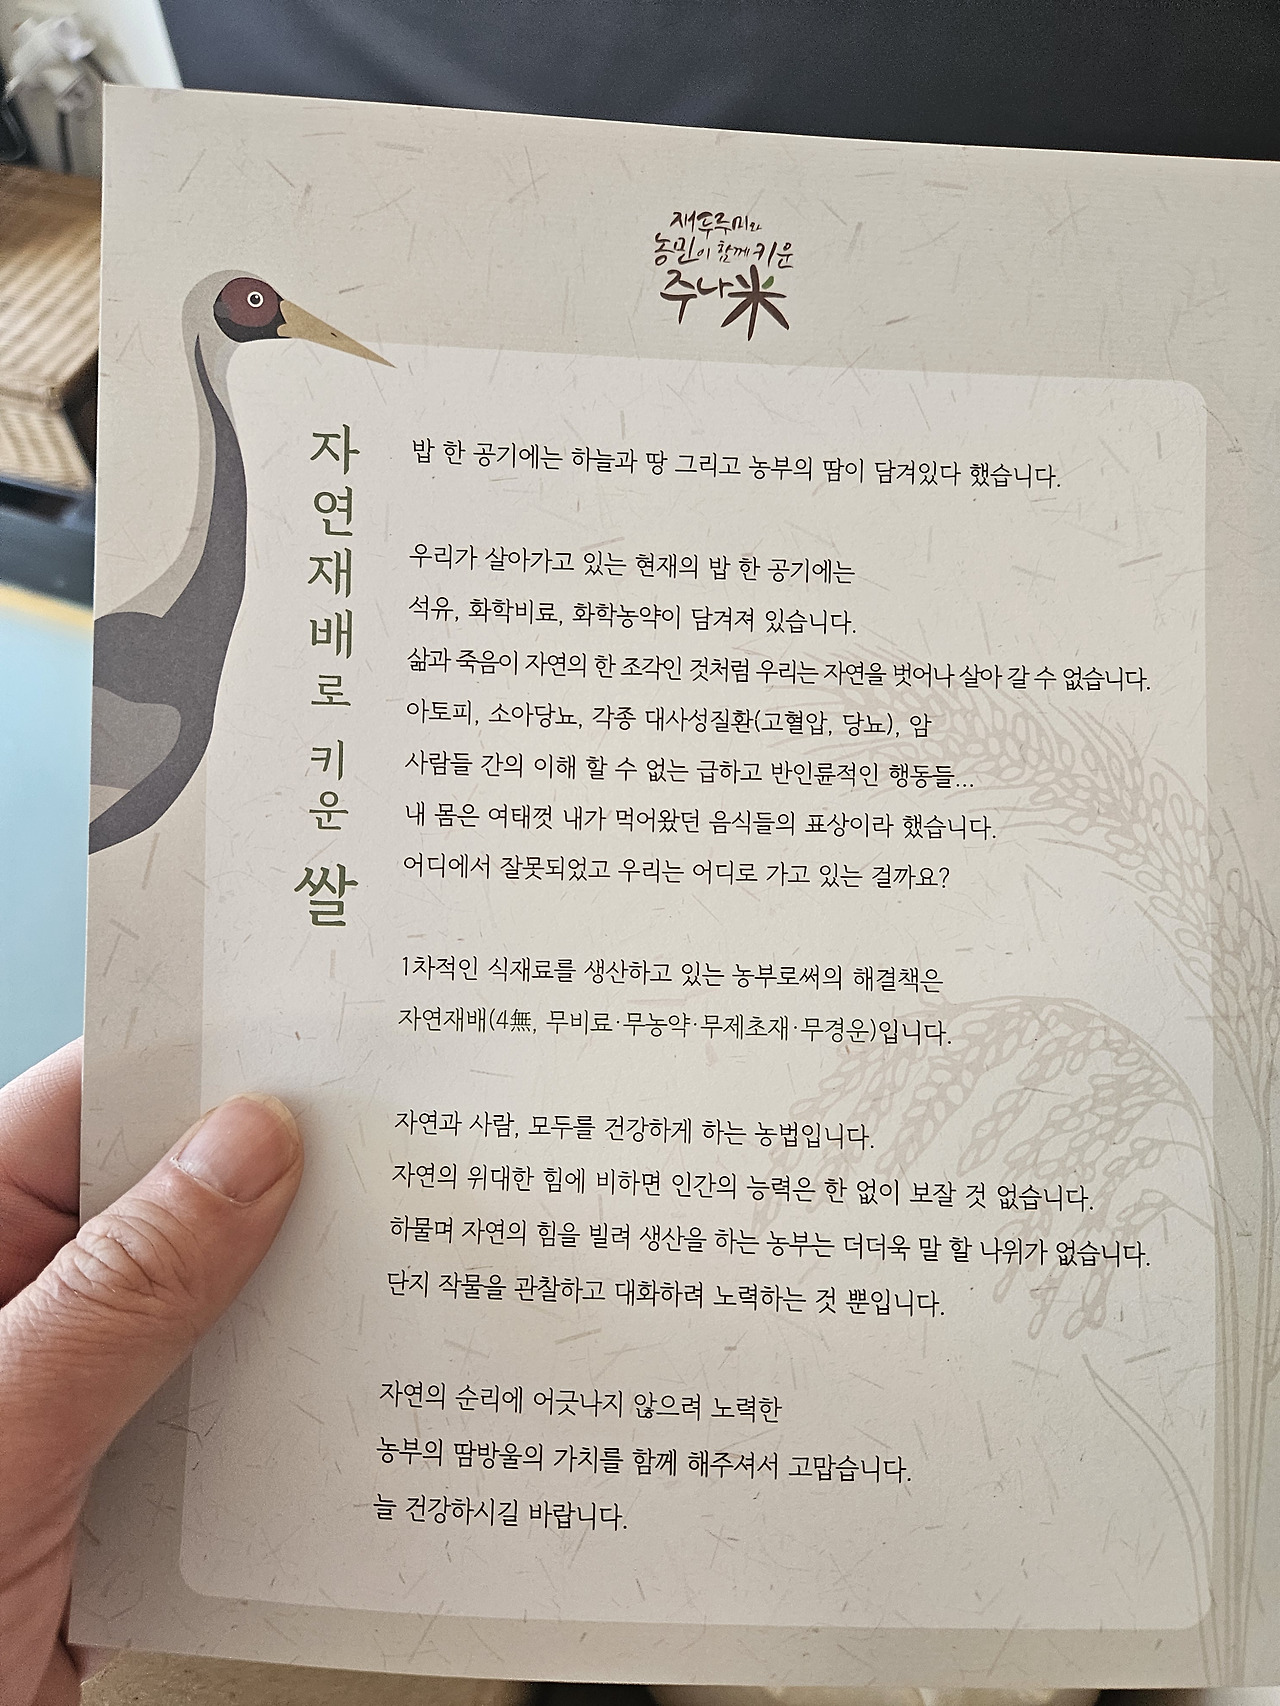 재두루미와
농민이 함께 키운
주나米
자연재배로 키운 쌀
밥 한 공기에는 하늘과 땅 그리고 농부의 땀이 담겨있다 했습니다.
우리가 살아가고 있는 현재의 밥 한 공기에는
석유, 화학비료, 화학농약이 담겨져 있습니다.
삶과 죽음이 자연의 한 조각인 것처럼 우리는 자연을 벗어나 살아 갈 수 없습니다.
아토피, 소아당뇨, 각종 대사성질환(고혈압, 당뇨), 암
사람들 간의 이해 할 수 없는 급하고 반인륜적인 행동들...
내 몸은 여태껏 내가 먹어왔던 음식들의 표상이라 했습니다.
어디에서 잘못되었고 우리는 어디로 가고 있는 걸까요?
1차적인 식재료를 생산하고 있는 농부로써의 해결책은
자연재배(4無, 무비료·무농약·무제초재·무경운)입니다.
자연과 사람, 모두를 건강하게 하는 농법입니다.
자연의 위대한 힘에 비하면 인간의 능력은 한 없이 보잘 것 없습니다.
하물며 자연의 힘을 빌려 생산을 하는 농부는 더더욱 말 할 나위가 없습니다.
단지 작물을 관찰하고 대화하려 노력하는 것 뿐입니다.
자연의 순리에 어긋나지 않으려 노력한
농부의 땀방울의 가치를 함께 해주셔서 고맙습니다.
늘 건강하시길 바랍니다.